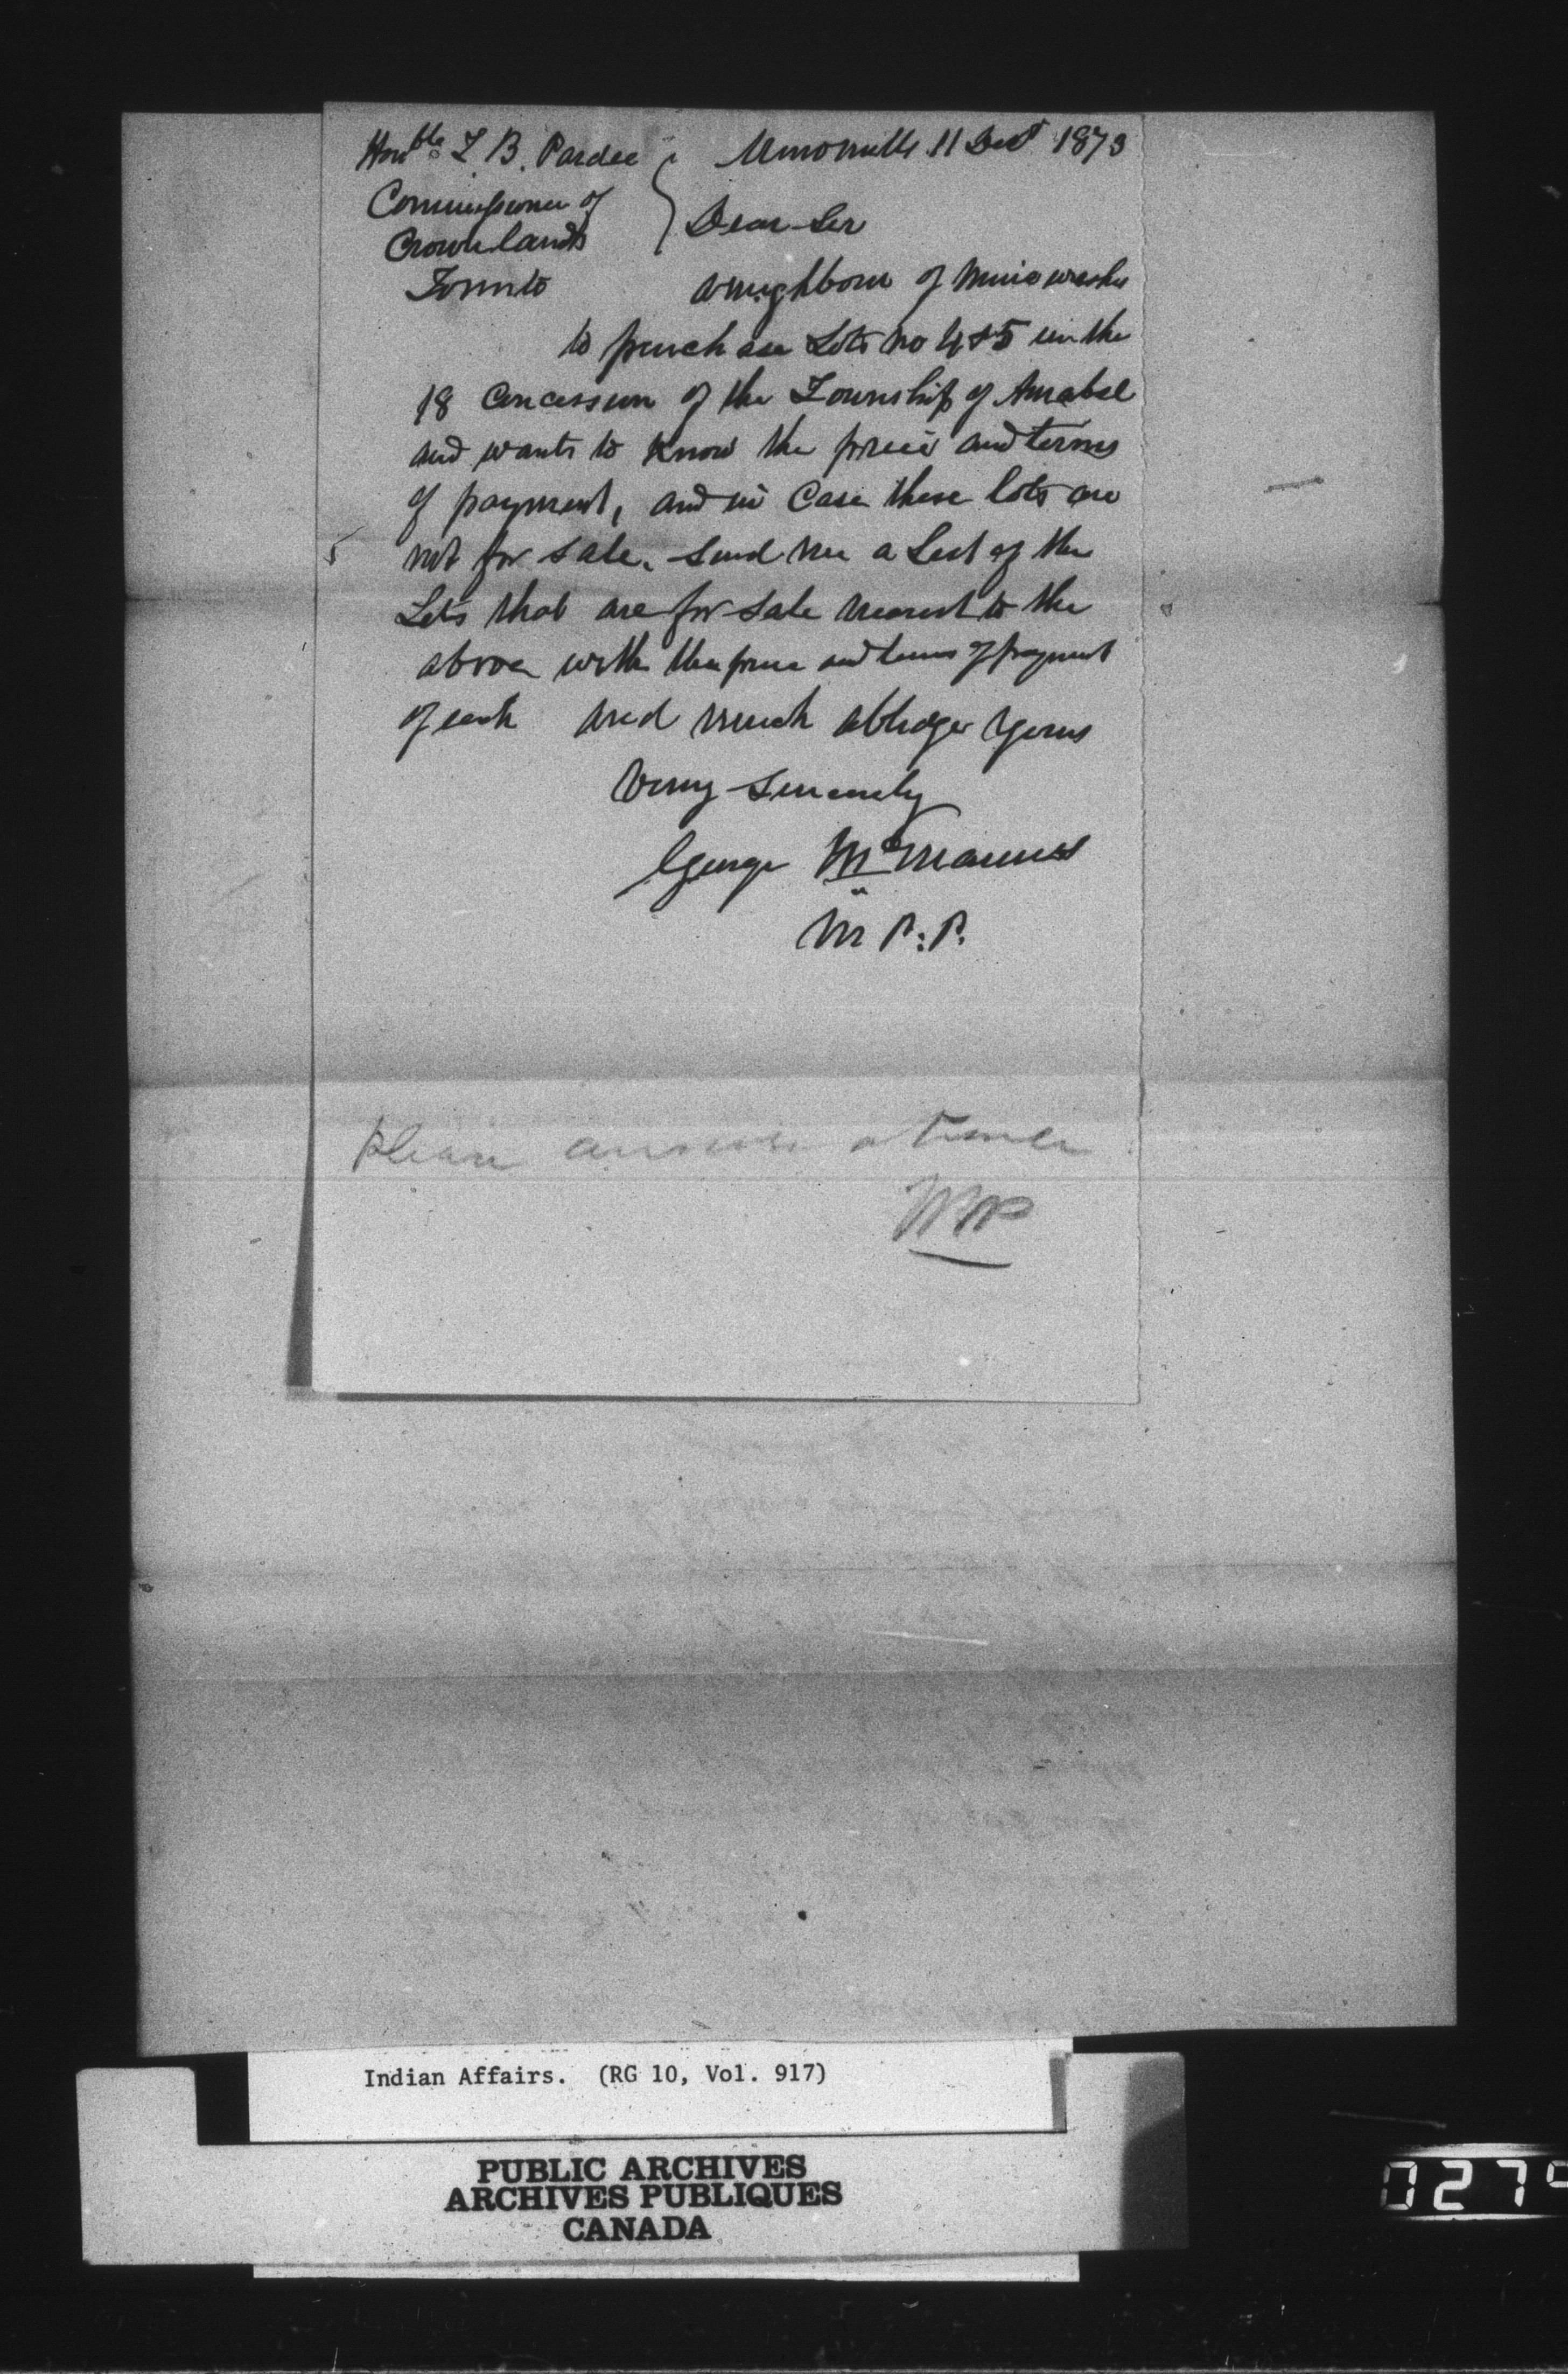 Honble T. B. Pardee
Commissioner of
Crown lands
Toronto
Monomills 11 Dec 1873
Dear Sir
a neighbour of mine wishes
to purchase Lots no 4 & 5 in the
18 Concession of the Township of Amabel
and wants to know the price and terms
of payment, and in Case these lots are
not for sale. Send me a List of the
Lots that are for sale nearest to the
above with the price and terms of payment
of each and much oblidge yours
Very Sincerely
George McManus
M P. P.
Please answer at once
Indian Affairs. (RG 10, Vol. 917)
PUBLIC ARCHIVES
ARCHIVES PUBLIQUES
CANADA